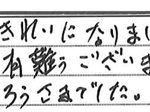 きれいになりまし
有難うございま
ろうさまでした。